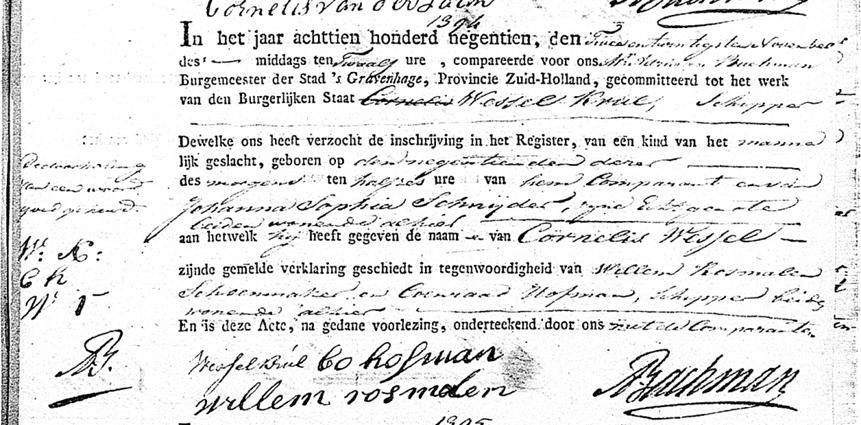 Cornelis van der
1394
In het jaar achttien honderd negentien, den Tweeentwintigsten November
des middags ten Twaalf ure , compareerde voor ons Bachman
Burgemeester der Stad 's Gravenhage, Provincie Zuid-Holland, gecommitteerd tot het werk
van den Burgerlijken Staat Cornelis Wessel Kruel, Schipper
Dewelke ons heeft verzocht de inschrijving in het Register, van een kind van het manne
lijk geslacht, geboren op den negentienden dezer
des morgens ten half ure van hem Comparant en van
Johanna Sophia Schnijder, zyne Echtgenote
beiden wonende alhier
aan hetwelk hij heeft gegeven de naam van Cornelis Wessel
zijnde gemelde verklaring geschiedt in tegenwoordigheid van Willem Rosmalen
Schoenmaker en Coenraad Hofman, Schipper beide
wonende alhier
En is deze Acte, na gedane voorlezing, onderteekend door ons met de Comparanten
Doorhaling
van een woord
goedgekeurd.
W. K:
C h
W. r
AB.
Wessel Kruel Co hofman
willem rosmalen
ABachman
1395